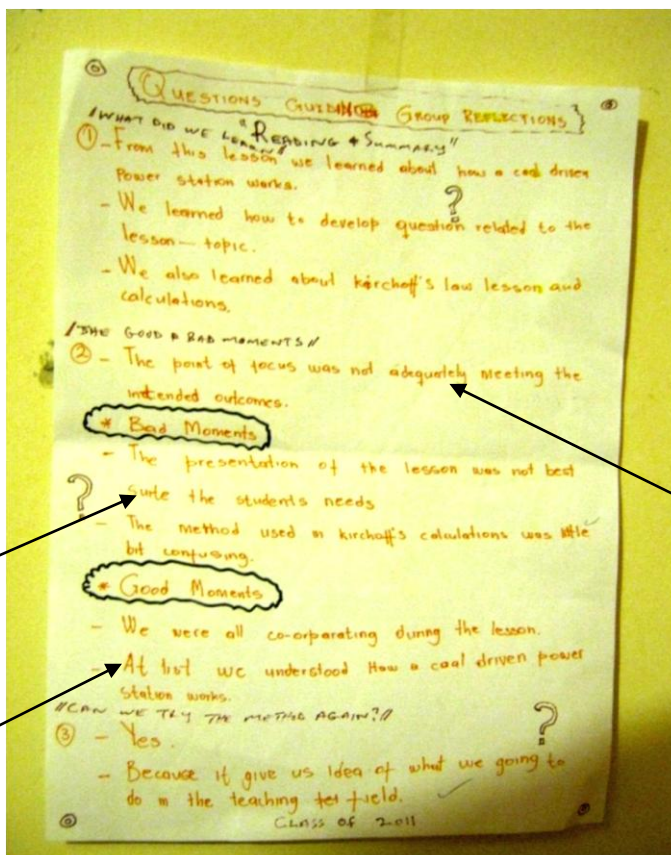 QUESTIONS GUIDING GROUP REFLECTIONS
"READING & Summary"
//WHAT DID WE LEARN//
① - From this lesson we learned about how a coal driven
Power station works.
- We learned how to develop question related to the
lesson - topic.
- We also learned about kirchoff's law lesson and
calculations.
//THE GOOD & BAD MOMENTS//
② - The point of focus was not adequately meeting the
intended outcomes.
* Bad Moments
- The presentation of the lesson was not best
surte the students needs
- The method used in kirchoff's calculations was little
bit confusing.
* Good Moments
- We were all co-orparating during the lesson.
- At list we understood How a coal driven power
station works.
//CAN WE TRY THE METHOD AGAIN?//
③ - Yes.
- Because it give us idea of what we going to
do in the teaching field.
CLASS OF 2011